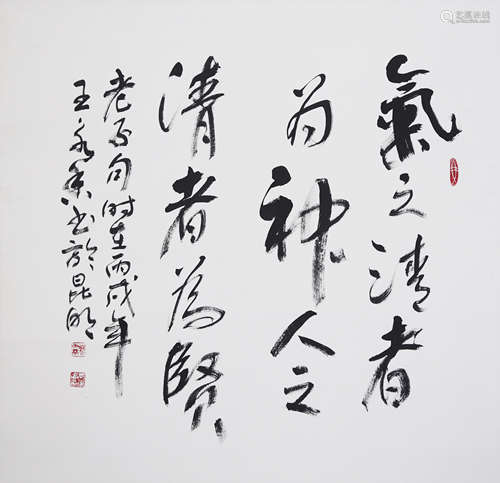 氣之清者
为神人之
清者為賢
老子句时在丙戌年
王永书於昆明